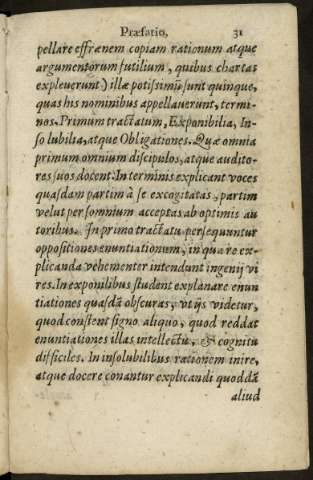 Præfatio, 31
pellare effrænem copiam rationum atque
argumentorum futilium, quibus chartas
expleverunt) illæ potissimũ sunt quinque,
quas his nominibus appellaverunt, termi-
nos. Primum tractatum, Exponibilia, In-
solubilia, atque Obligationes. Quæ omnia
primum omnium discipulos, atque audito-
res suos docent. In terminis explicant voces
quasdam partim à se excogitatas, partim
velut per somnium acceptas ab optimis au
toribus. In primo tractatu persequuntur
oppositiones enuntiationum, in qua re ex-
plicanda vehementer intendunt ingenij vi
res. In exponibilibus student explanare enun
tiationes quasdã obscuras, vt ijs videtur,
quod constent signo aliquo, quod reddat
enuntiationes illas intellectu, & cognitu
difficiles. In insolubilibus rationem inire,
atque docere conantur explicandi quoddã
aliud